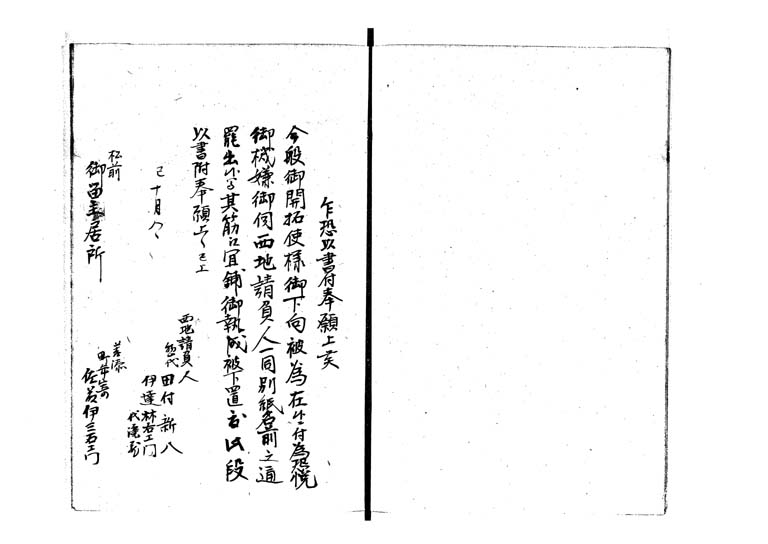 乍恐以書付奉願上候
今般御開拓使様御下向被為在候ニ付為恐悦
御機嫌御伺西地請負人一同別紙名前之通
罷出候間其筋江宜鋪御執成被下置度此段
以書附奉願上候已上
巳十月
西地請負人
惣代
田付新八
伊達林右エ門
代
松前
御
居所
差添
町井
佐 伊三右エ門